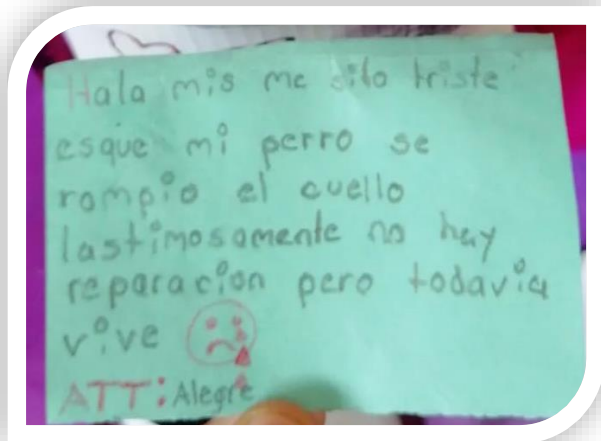 Hala mis me sito triste
esque mi perro se
rompio el cuello
lastimosamente no hay
reparacion pero todavia
vive
ATT: Alegre